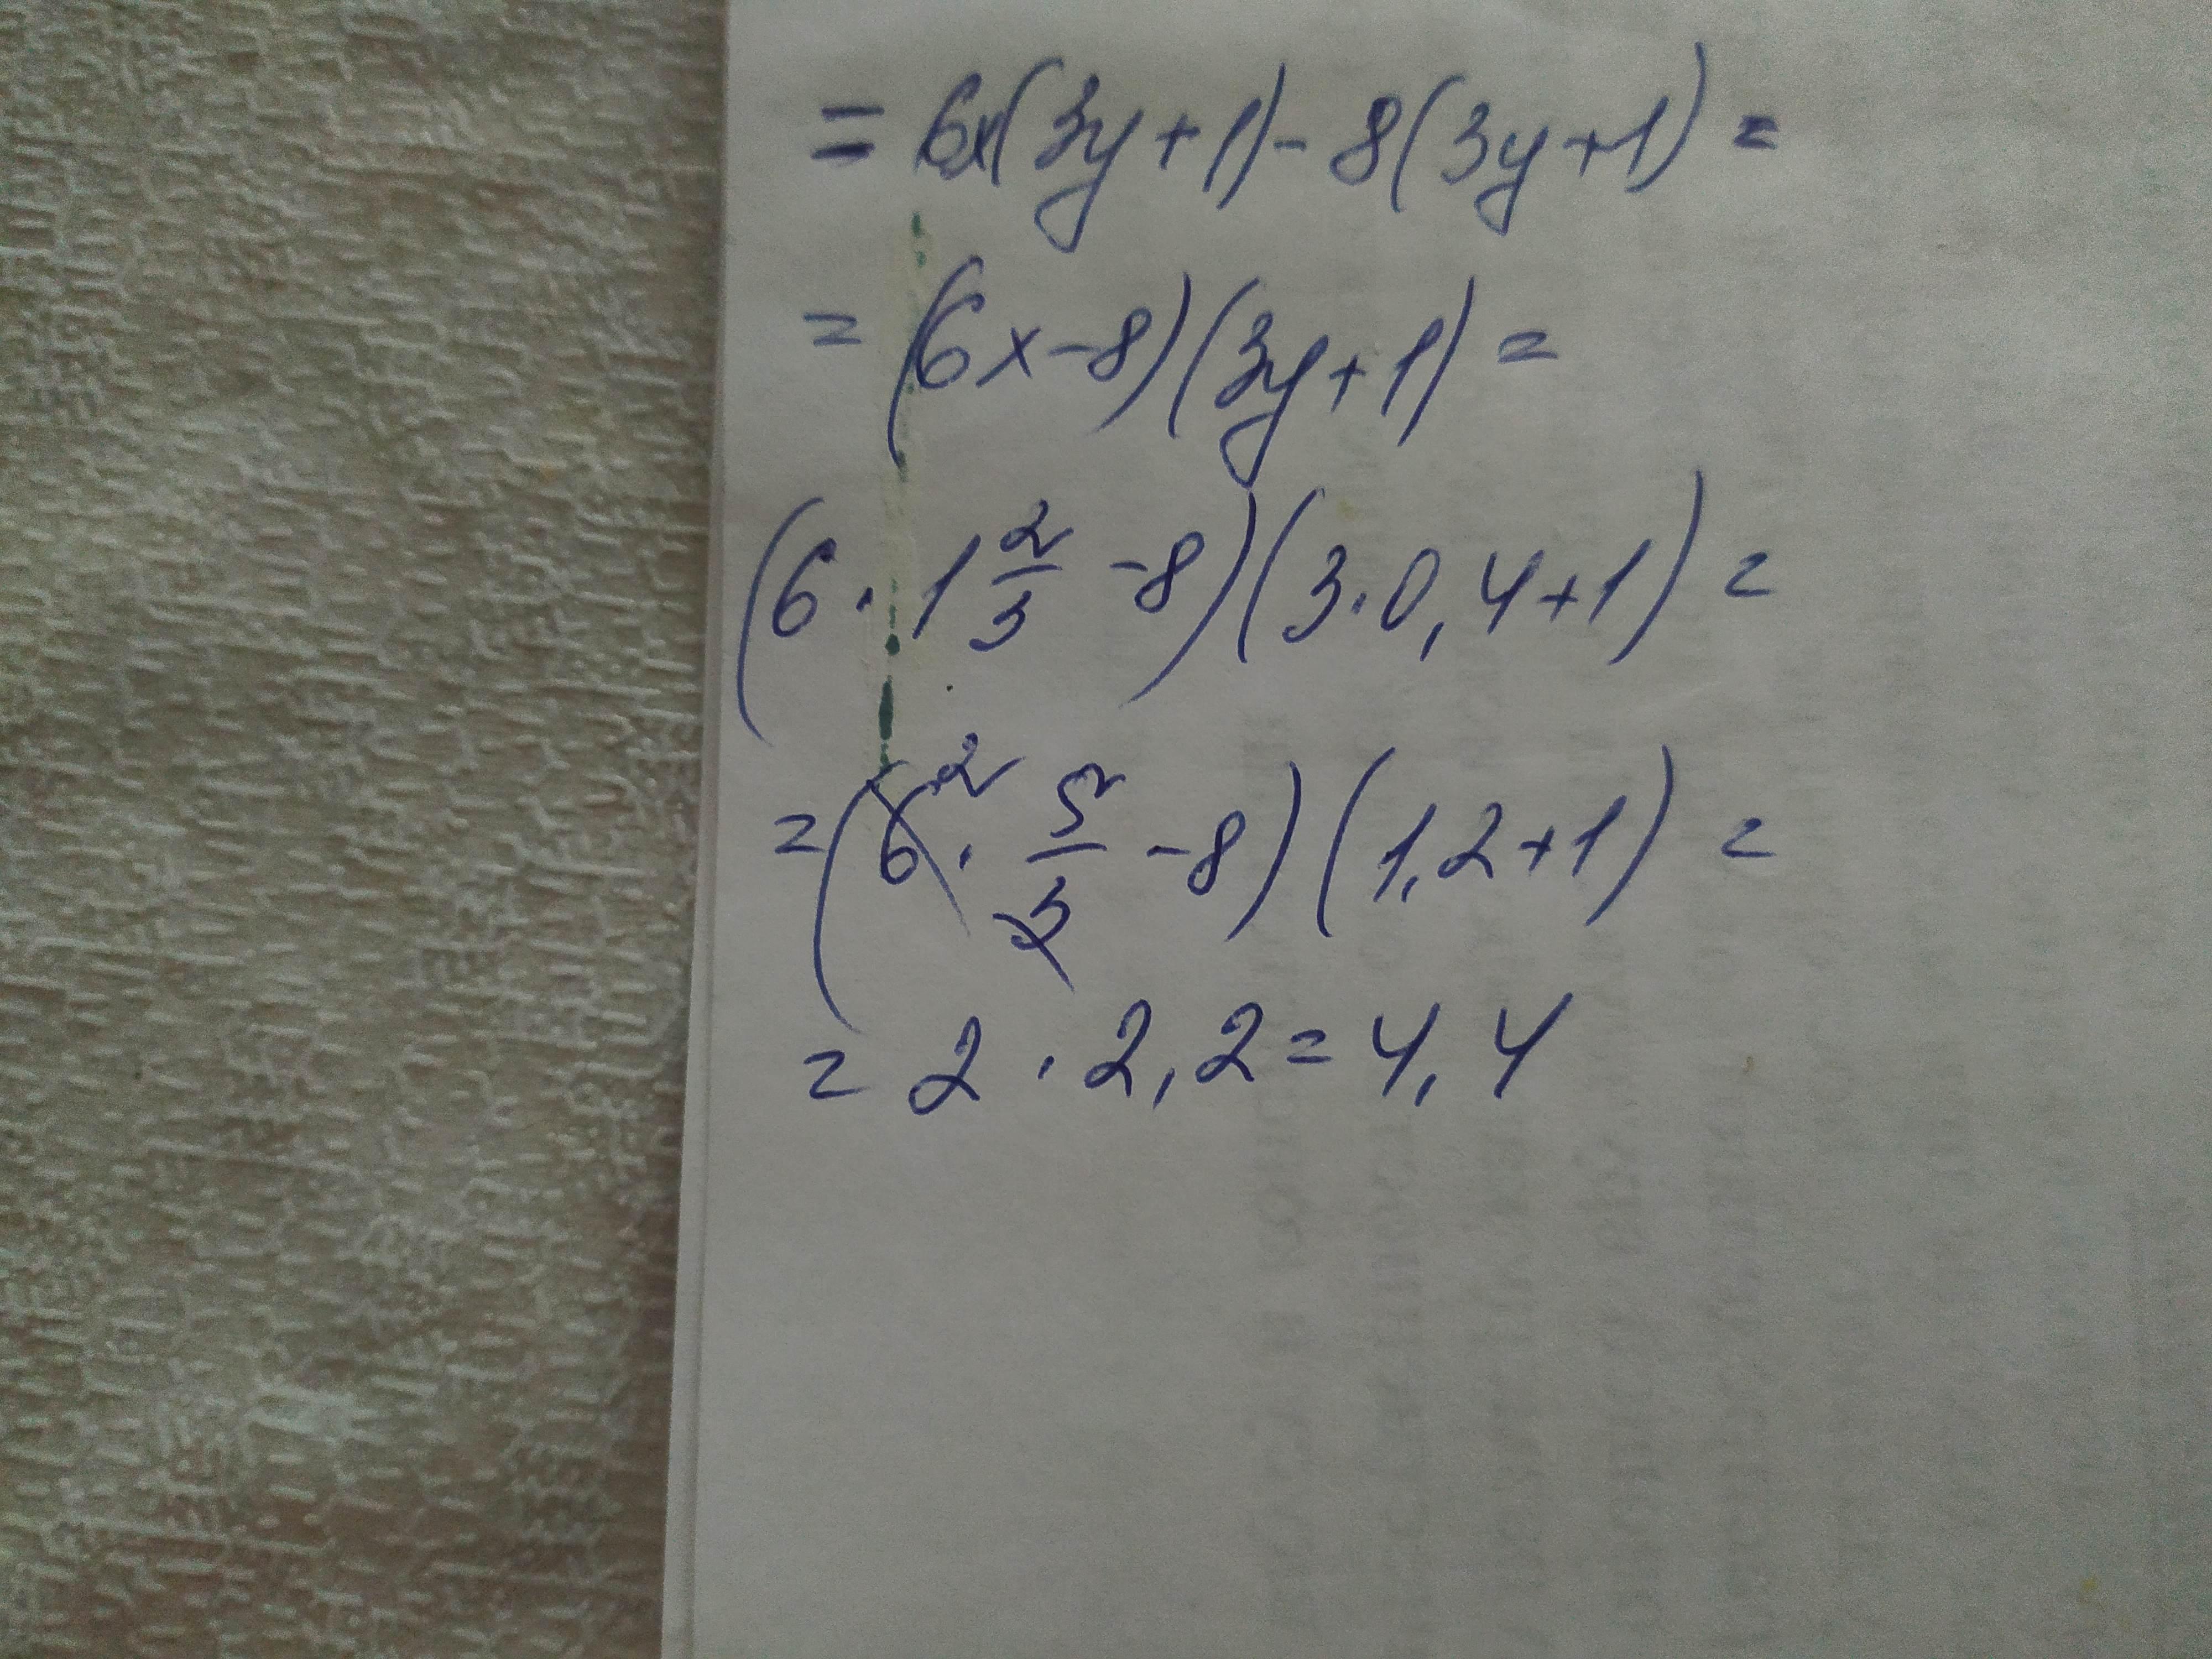 = 6x(3y+1)-8(3y+1) =
= (6x-8)(3y+1) =
(6·1 2/3 -8)(3·0,4+1) =
= (6² · 5/3 -8)(1,2+1) =
= 2 · 2,2 = 4,4